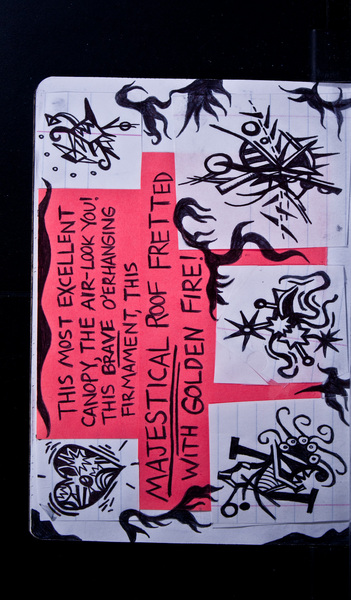 THIS MOST EXCELLENT
CANOPY, THE AIR-LOOK YOU!
THIS BRAVE O'ERHANGING
FIRMAMENT, THIS
MAJESTICAL ROOF FRETTED
WITH GOLDEN FIRE!